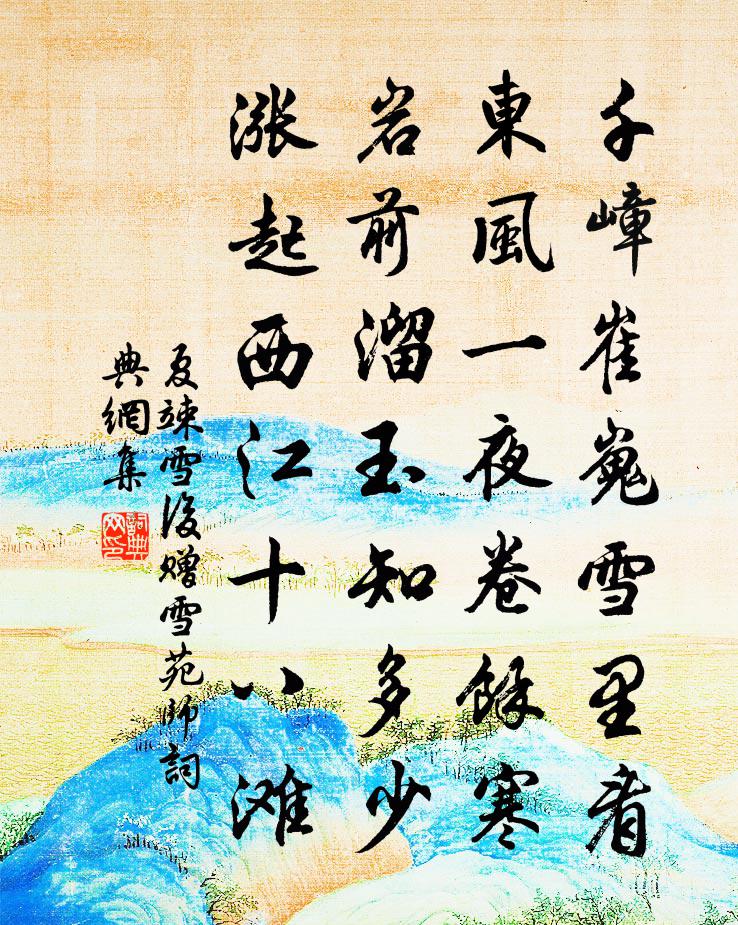 千嶂崔嵬雪里看
東風一夜卷餘寒
岩前溜玉知多少
漲起西江十八滩
夏竦雪後赠雪苑師詞
典網集
詞典
网印